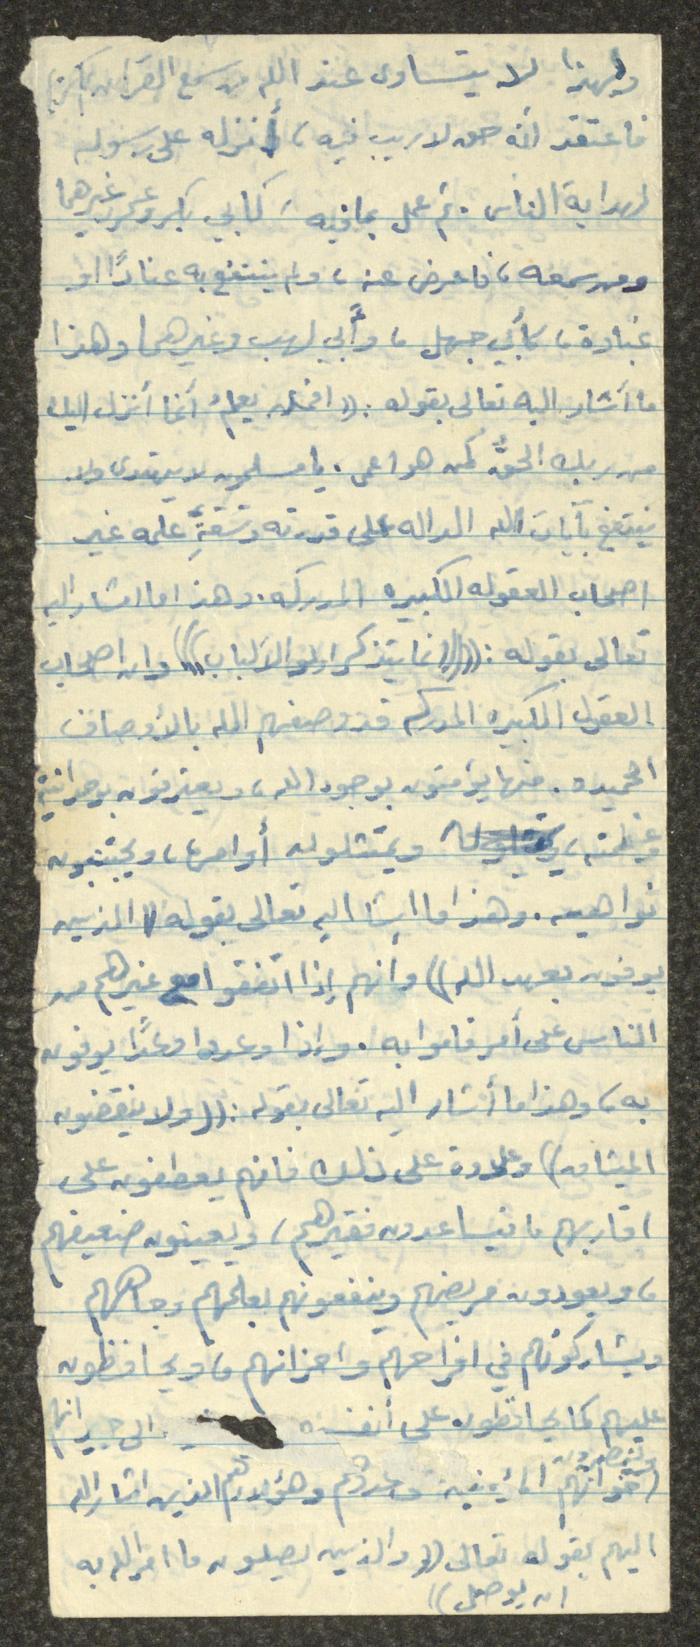 ولهذا لا يتساوى عند الله من سمع القرآن الكريم
فاعتقد أنه حق لا ريب فيه، أنزله على رسوله
لهداية الناس. ثم عمل بما فيه، كأبي بكر وعمر وغيرهما
ومن سمعه، فاعرض عنه، ولم ينتفع به عنادًا او
غباوة، كأبي جهل، وأبي لهب وغيرهما وهذا
ما أشار اليه تعالى بقوله: ((افمن يعلمُ أنما أنزل اليك
من ربك الحقُّ كمن هو اعمى. يا مسلمون لا يهتدى ولا
ينتفع بآيات الله الداله على قدرته وسَعَةِ علمه غير
اصحاب العقوله الكبيره المدركه. وهذا ما اشار اليه
تعالى بقوله: ((((انما يتذكر اولو الالباب)))) وان اصحاب
العقول الكبيره المدركه قد وصفهم الله بالأوصاف
الحميده. منها يؤمنون بوجود الله، ويعترفون بوحدانيته
وعظمته، ويمتثلون أوامره، ويجتنبون
نواهيه. وهذا ما اشا اليه تعالى بقوله ((الذين
يوفون بعهد الله)) وأنهم إذا اتفقوا مع غيرهم من
الناس على أمر قاموا به. وإذا وعدوا وعدًا يوفون
به، وهذا ما أشار اليه تعالى بقوله: ((ولا ينقضون
الميثاق)) وعلاوة على ذلك فانهم يعطفون على
اقاربهم، فيساعدون فقيرهم، ويعينون ضعيفهم
، ويعودون مريضهم وينفعونهم بعلمهم وجاههم
ويشاركونهم في افراحهم واحزانهم، ويحافظون
عليهم كما يحافظون على أنفسهم الى جيرانهم
وينصرون
اخوانهم المؤمنين وهؤلاء هم الذين اشار الله
اليهم بقوله تعالى ((والذين يصلون ما امر الله به
ان يوصل))